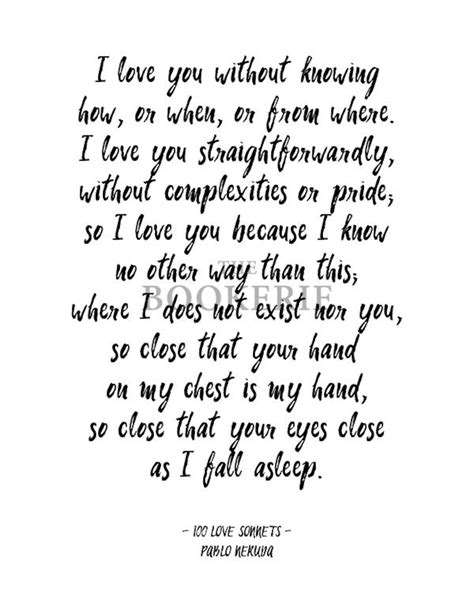 I love you without knowing
how, or when, or from where.
I love you straightforwardly,
without complexities or pride;
so I love you because I know
no other way than this;
THE
BOOKERIE
where I does not exist nor you,
so close that your hand
on my chest is my hand,
so close that your eyes close
as I fall asleep.
- 100 LOVE SONNETS -
PABLO NERUDA